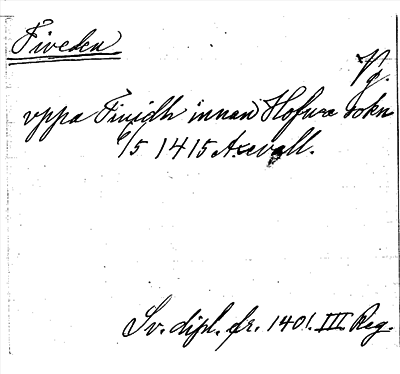 Tiveden
Vg.
vppa Tiuidh innan Hofwa sokn
1/5 1415 Axevall.
Sv. dipl. fr. 1401. III. Reg.